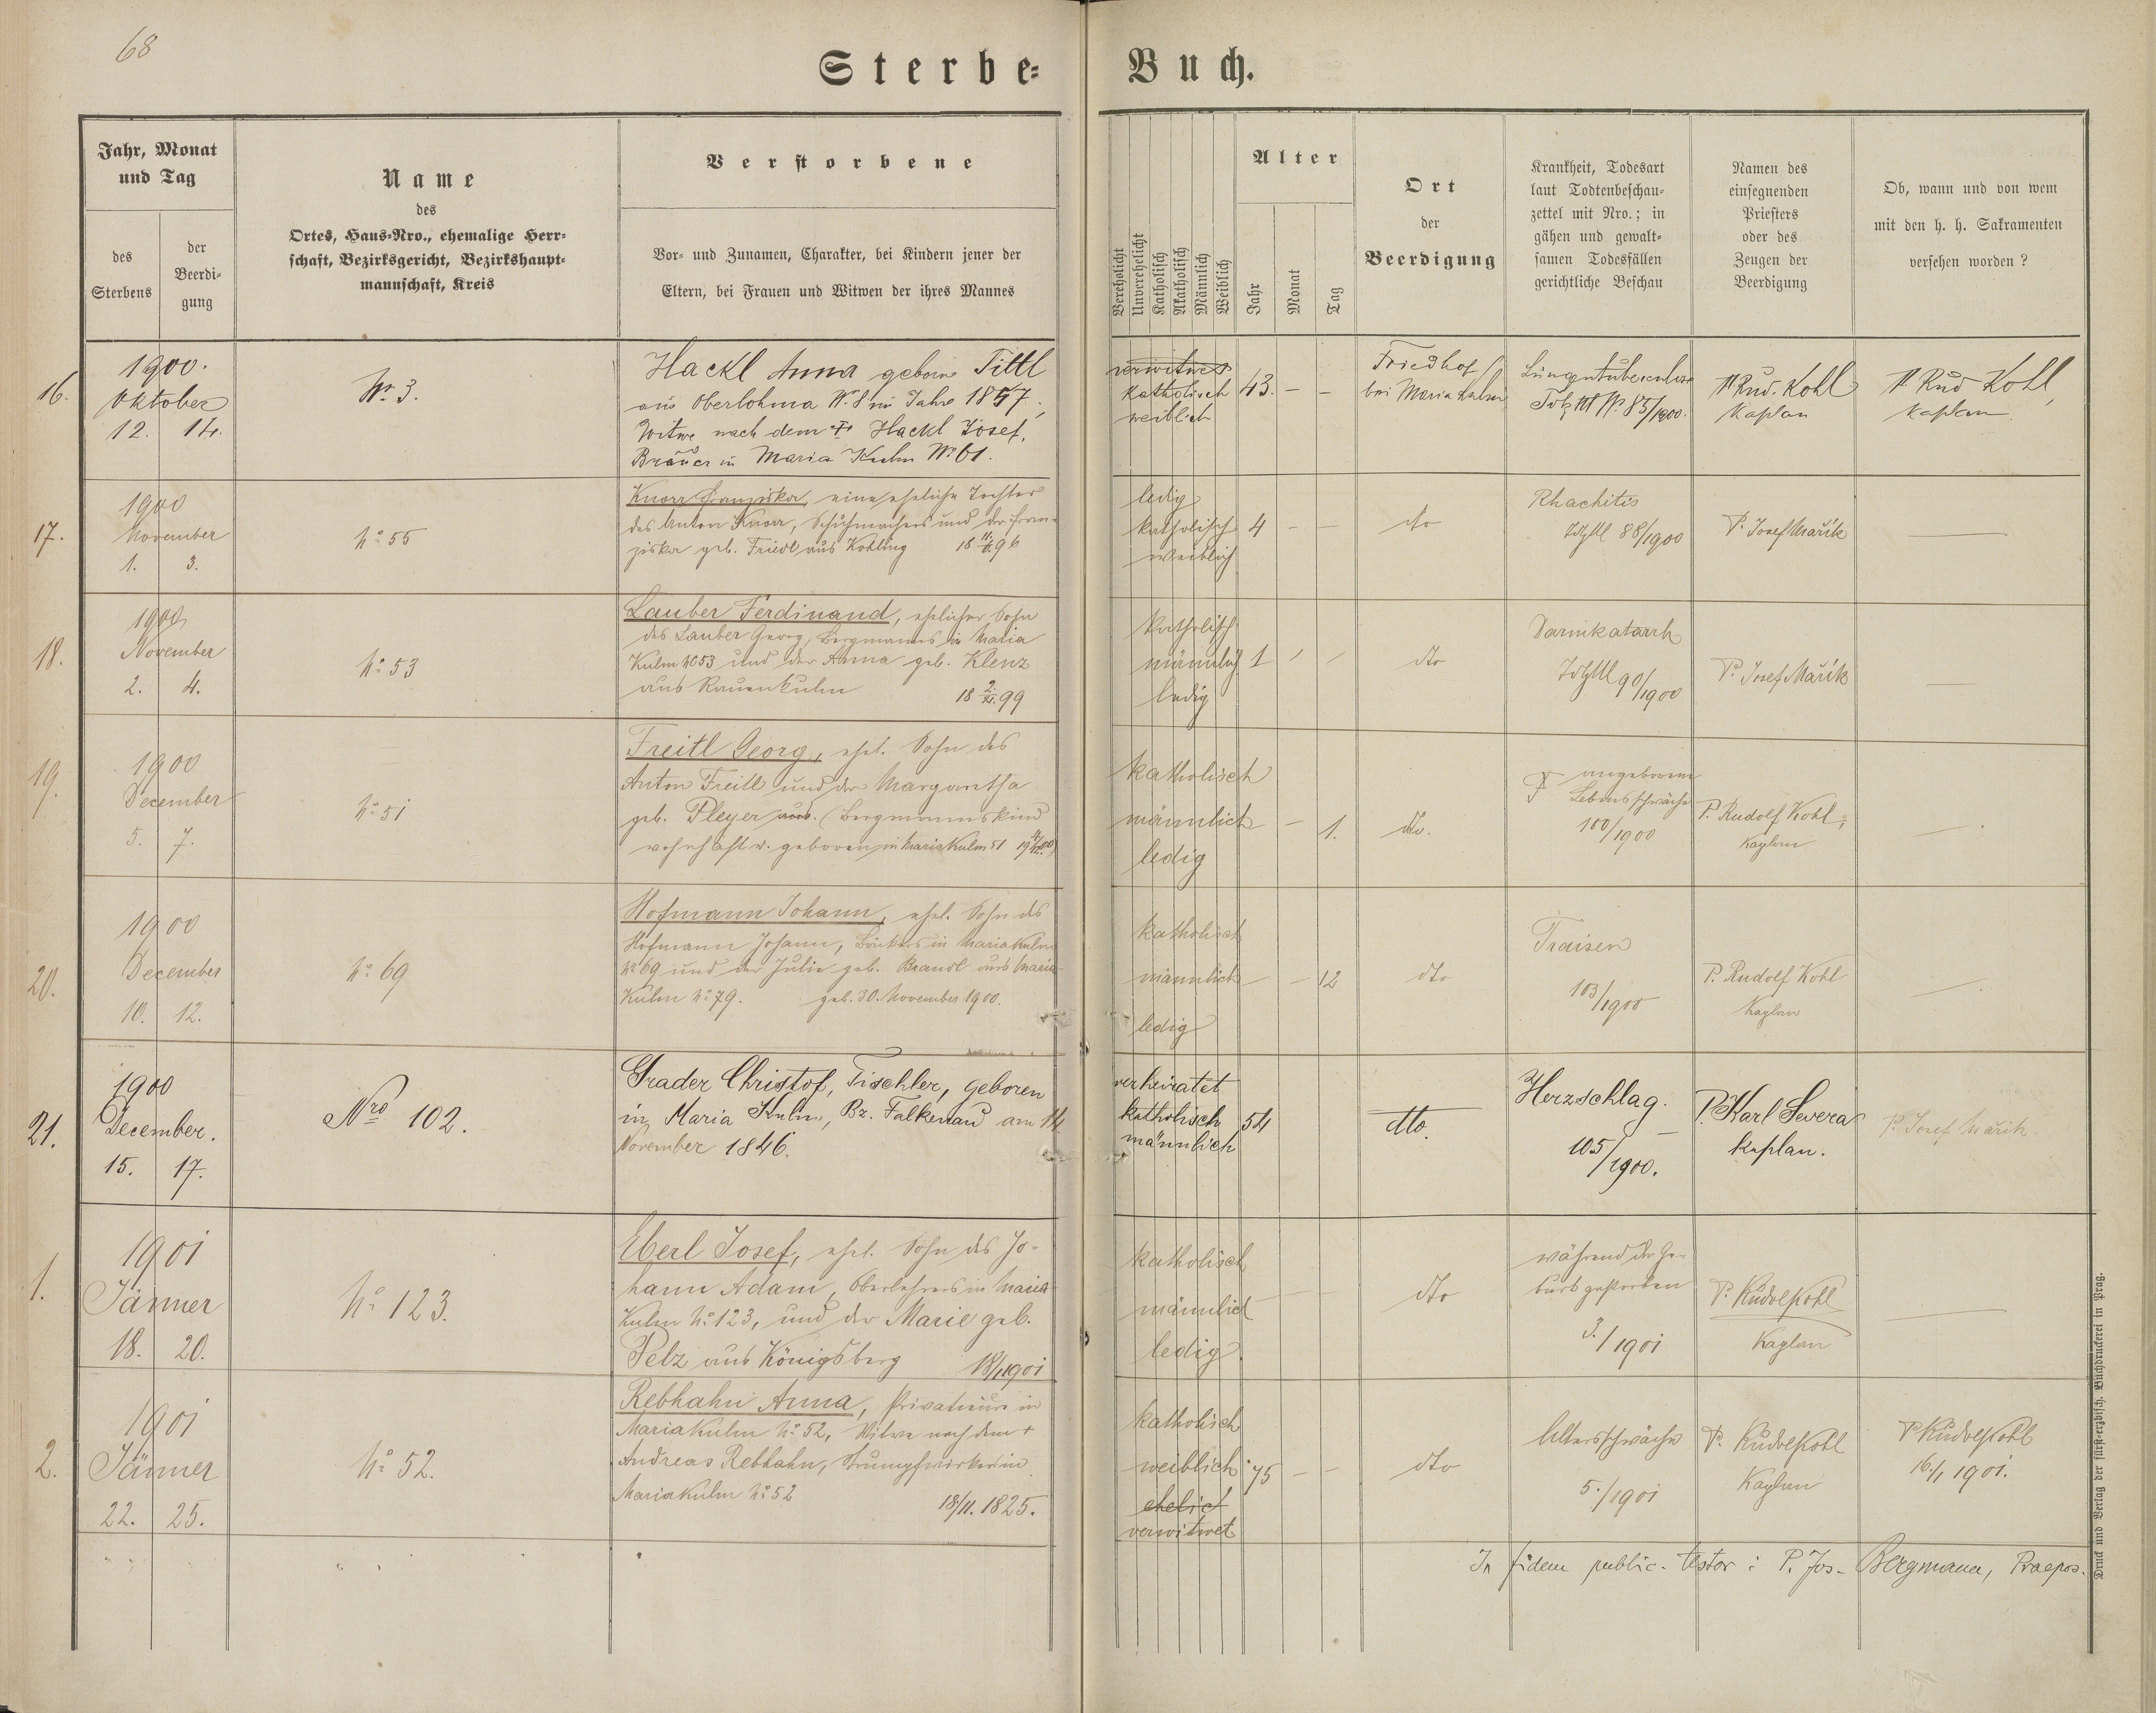 68
Sterbe-
Buch.
Jahr, Monat
und Tag
des
Sterbens
der
Beerdi-
gung
Name
des
Ortes, Haus-Nro., ehemalige Herr-
schaft, Bezirksgericht, Bezirkshaupt-
mannschaft, Kreis
Verstorbene
Vor- und Zunamen, Charakter, bei Kindern jener der
Eltern, bei Frauen und Witwen der ihres Mannes
Verehelicht
Unverehelicht
Katholisch
Akatholisch
Männlich
Weiblich
Alter
Jahr
Monat
Tag
Ort
der
Beerdigung
Krankheit, Todesart
laut Todtenbeschau-
zettel mit Nro.; in
gähen und gewalt-
samen Todesfällen
gerichtliche Beschau
Namen des
einsegnenden
Priesters
oder des
Zeugen der
Beerdigung
Ob, wann und von wem
mit den h. h. Sakramenten
versehen worden?
16.
1900.
Oktober
12. 14.
Nr. 3.
Hackl Anna geborne Tittl
aus Oberlohma Nr. 8 im Jahre 1857,
Witwe nach dem † Hackl Josef,
Bräuer in Maria Kulm Nr. 61.
verwitwet
katholisch
weiblich
43. – –
Friedhof
bei Maria Kulm
Lungentuberculose
Nr. 85/1900.
P. Rud. Kohl
Kaplan
P. Rud Kohl,
Kaplan
17.
1900
November
1. 3.
No 55
Knorr Franziska, eine eheliche Tochter
des Anton Knorr, Schuhmachers und der Fran-
ziska geb. Friedl aus Kohling 18 11./8. 96
ledig
katholisch
weiblich
4 – –
dto
Rhachitis
88/1900
P. Josef Mařík
—
18.
1900
November
2. 4.
No 53
Lauber Ferdinand, ehelicher Sohn
des Lauber Georg, Bergmanns in Maria
Kulm No 53 und der Anna geb. Klenz
aus Rauenkulm 18 2./XI. 99
katholisch
männlich
ledig
1
dto
Darmkatarrh
90/1900
P. Josef Mařík
—
19.
1900
December
5. 7.
No 51
Freitl Georg, ehel. Sohn des
Anton Freitl und der Margaretha
geb. Pleyer aus. (Bergmannskind
wohnhaft u. geboren in Maria Kulm 51 19 4/12. 00)
katholisch
männlich
ledig
– 1.
dto.
angeborene
Lebensschwäche
100/1900
P. Rudolf Kohl,
Kaplan
—
20.
1900
December
10. 12.
No 69
Hofmann Johann, ehel. Sohn des
Hofmann Johann, Bäckers in Maria Kulm
No 69 und der Julie geb. Brandl aus Maria
Kulm No 79. geb. 30. November 1900.
katholisch
männlich
ledig
– – 12
dto
Fraisen
103/1900
P. Rudolf Kohl
Kaplan
—
21.
1900
December.
15. 17.
Nro 102.
Grader Christof, Tischler, geboren
in Maria Kulm, Bz. Falkenau am 14.
November 1846.
verheiratet
katholisch
männlich
54
dto.
Herzschlag.
105/1900.
P. Karl Severa
Kaplan.
P. Josef Mařík
1.
1901
Jänner
18. 20.
No 123.
Eberl Josef, ehel. Sohn des Jo-
hann Adam, Oberlehrers in Maria
Kulm No 123, und der Marie geb.
Pelz aus Königsberg 18/1 1901
katholisch
männlich
ledig
dto
während der Ge-
burt gestorben
3./1901
P. Rudolf Kohl
Kaplan
—
2.
1901
Jänner
22. 25.
No 52.
Rebhahn Anna, Privatière in
Maria Kulm No 52, Witwe nach dem †
Andreas Rebhahn, Strumpfwirker in
Maria Kulm No 52
18/11. 1825.
katholisch
weiblich
ehelich
verwitwet
75 – –
dto
Altersschwäche
5./1901
P. Rudolf Kohl
Kaplan
P. Rudolf Kohl
16./1 1901.
In fidem public. testor: P. Jos. Bergmann, Praepos.
Druck und Verlag der fürst-erzbisch. Buchdruckerei in Prag.